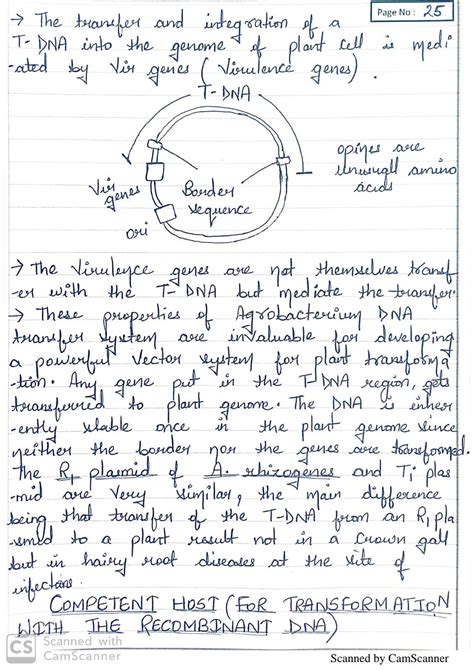 Page No: 25
→ The transfer and integration of a
T-DNA into the genome of plant cell is medi
-ated by Vir genes (Virulence genes).
T-DNA
opines are
unusuall amino
acids
Vir
genes
Border
sequence
ori
→ The Virulence genes are not themselves transf
-er with the T-DNA but mediate the transfer.
→ These properties of Agrobacterium DNA
transfer system are invaluable for developing
a powerful Vector system for plant transforma
-tion. Any gene put in the T-DNA region, gets
transferred to plant genome. The DNA is inher
-ently stable once in the plant genome since
neither the border nor the genes are transformed.
The Ri plasmid of A. rhizogenes and Ti plas
-mid are very similar, the main difference
being that transfer of the T-DNA from an Ri pla
-smid to a plant result not in a Crown gall
but in hairy root diseases at the site of
infections.
COMPETENT HOST (FOR TRANSFORMATION
WITH THE RECOMBINANT DNA)
CS Scanned with
CamScanner
Scanned by CamScanner